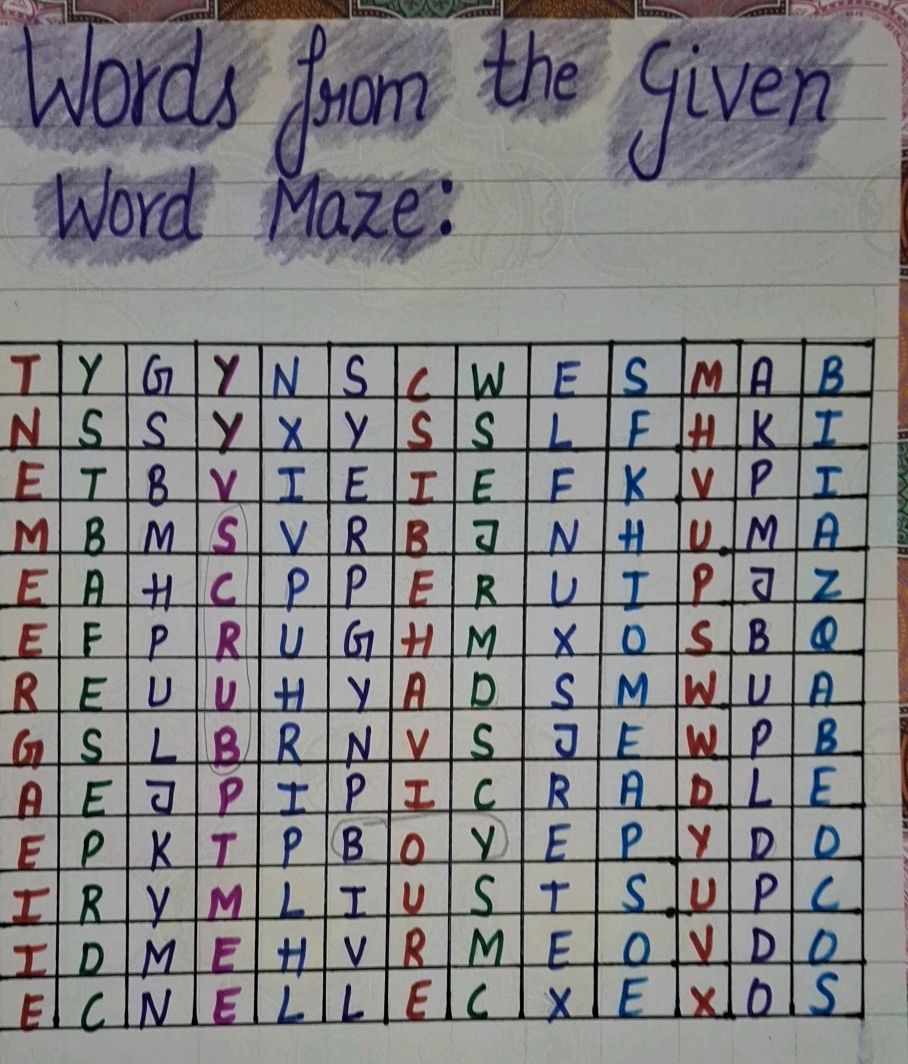 Words from the given
Word Maze:
T Y G Y N S C W E S M A B
N S S Y X Y S S L F H K I
E T B V I E I E F K V P I
M B M S V R B J N H U M A
E A H C P P E R U I P J Z
E F P R U G H M X O S B Q
R E U U H Y A D S M W U A
G S L B R N V S J E W P B
A E J P I P I C R A D L E
E P K T P B O Y E P Y D D
I R Y M L I U S T S U P C
I D M E H V R M E O V D O
E C N E L L E C X E X O S